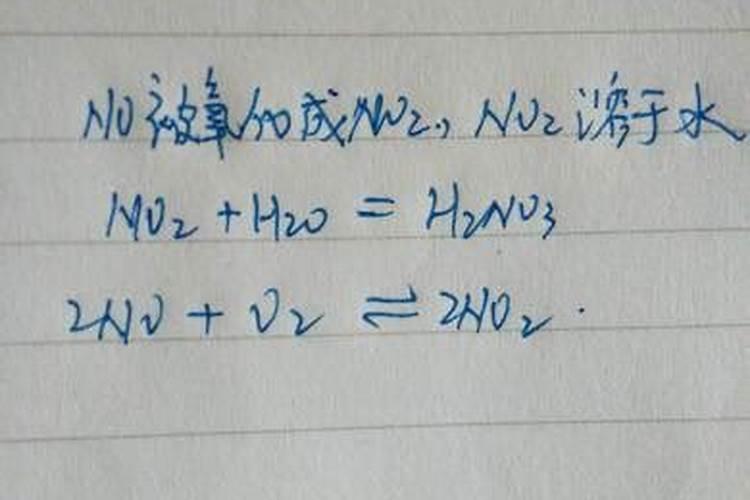 NO被氧化成NO2，NO2溶于水
NO2+H2O=H2NO3
2NO+O2⇌2NO2.